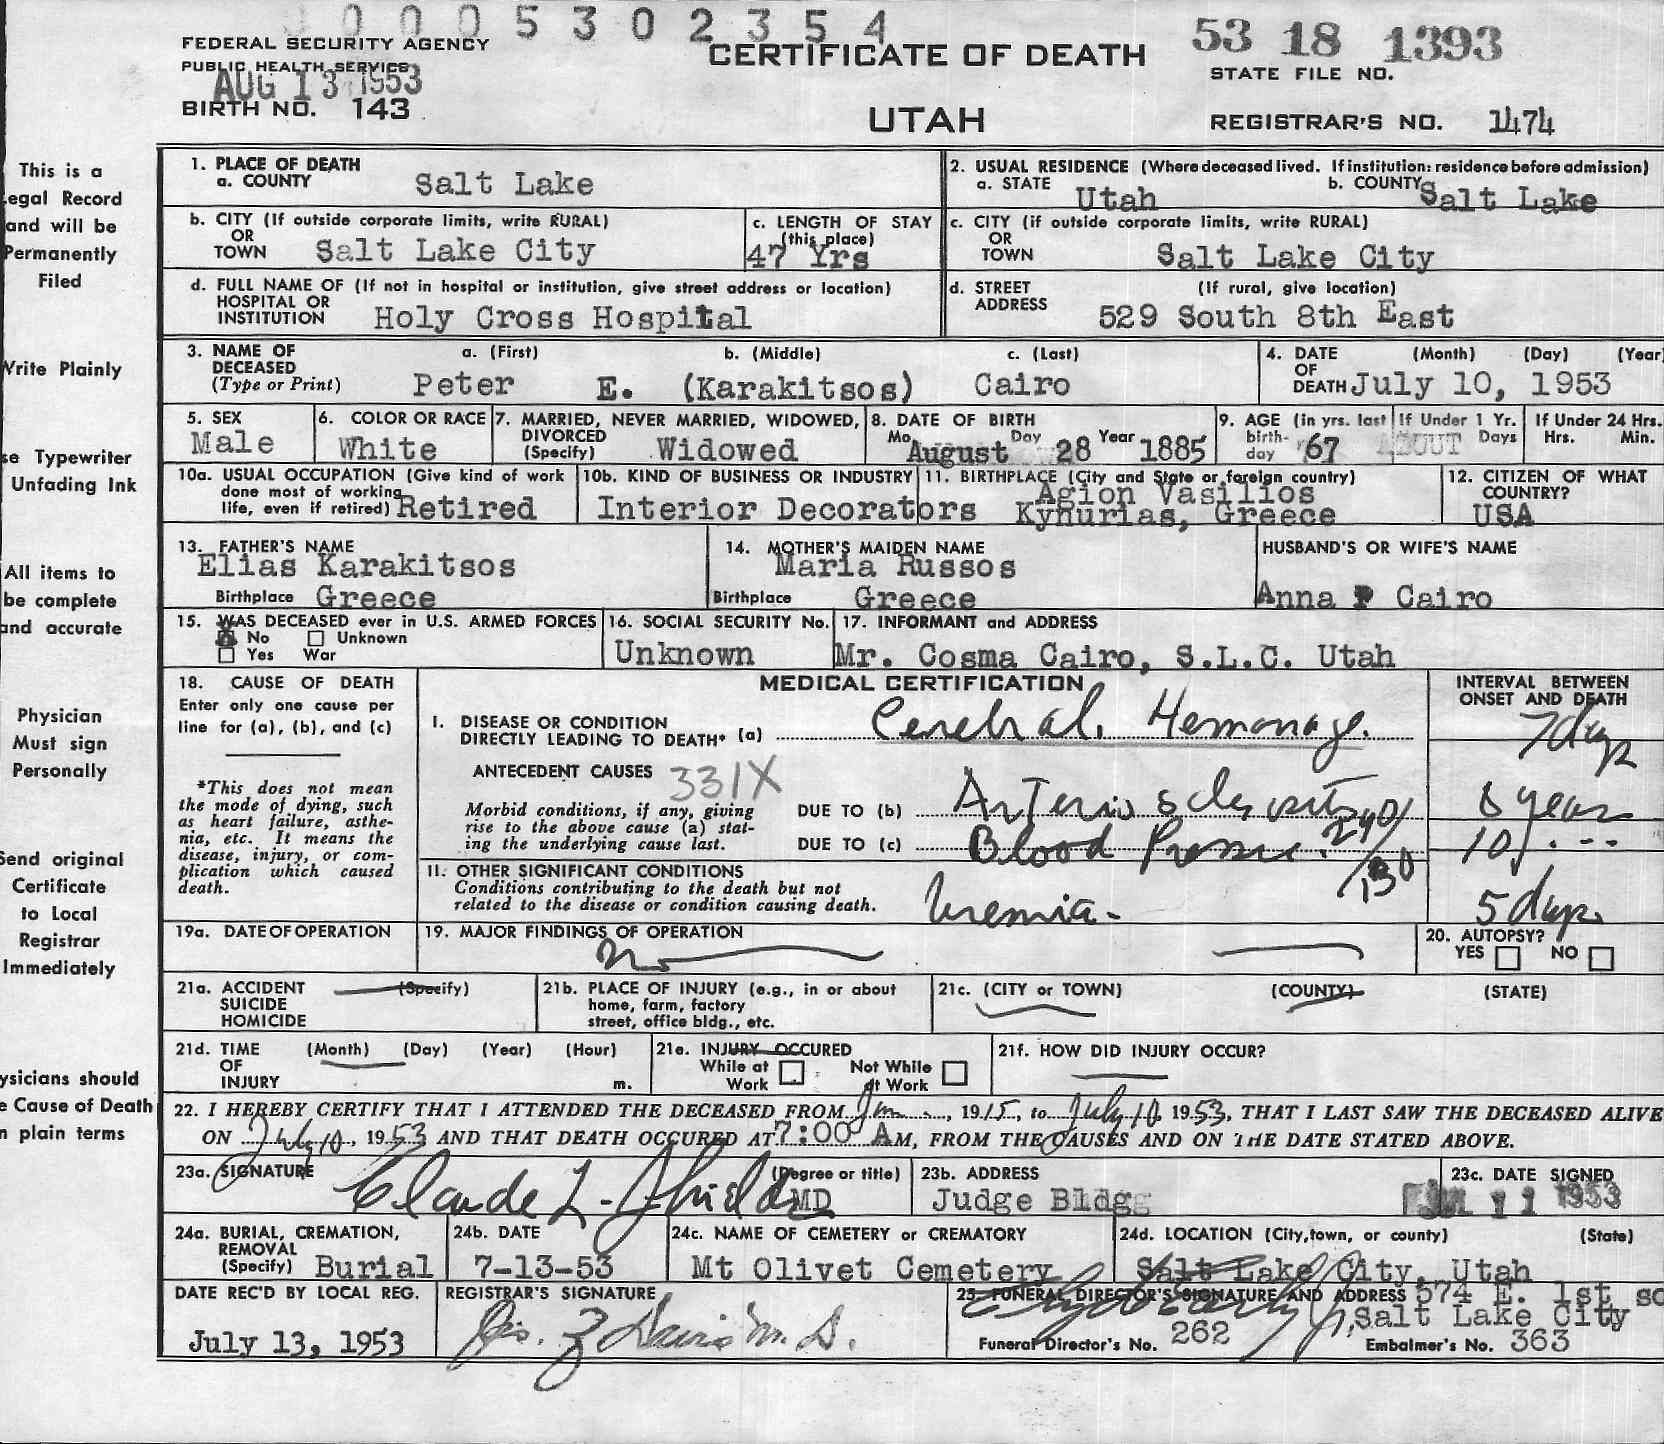 0005302354
FEDERAL SECURITY AGENCY
PUBLIC HEALTH SERVICE
AUG 13 1953
BIRTH NO. 143
CERTIFICATE OF DEATH
UTAH
53 18 1393
STATE FILE NO.
REGISTRAR'S NO. 1474
This is a
egal Record
and will be
Permanently
Filed
Write Plainly
se Typewriter
Unfading Ink
All items to
be complete
and accurate
Physician
Must sign
Personally
Send original
Certificate
to Local
Registrar
Immediately
ysicians should
e Cause of Death
n plain terms
1. PLACE OF DEATH
a. COUNTY Salt Lake
2. USUAL RESIDENCE (Where deceased lived. If institution: residence before admission)
a. STATE Utah b. COUNTY Salt Lake
b. CITY (If outside corporate limits, write RURAL)
OR
TOWN Salt Lake City
c. LENGTH OF STAY
(this place)
47 Yrs
c. CITY (if outside corporate limits, write RURAL)
OR
TOWN Salt Lake City
d. FULL NAME OF (If not in hospital or institution, give street address or location)
HOSPITAL OR
INSTITUTION Holy Cross Hospital
d. STREET (If rural, give location)
ADDRESS 529 South 8th East
3. NAME OF a. (First) b. (Middle) c. (Last)
DECEASED
(Type or Print) Peter E. (Karakitsos) Cairo
4. DATE (Month) (Day) (Year)
OF
DEATH July 10, 1953
5. SEX
Male
6. COLOR OR RACE
White
7. MARRIED, NEVER MARRIED, WIDOWED,
DIVORCED
(Specify) Widowed
8. DATE OF BIRTH
Mo. August Day 28 Year 1885
9. AGE (in yrs. last If Under 1 Yr. If Under 24 Hrs.
birth-
day 67 Days Hrs. Min.
10a. USUAL OCCUPATION (Give kind of work
done most of working
life, even if retired) Retired
10b. KIND OF BUSINESS OR INDUSTRY
Interior Decorators
11. BIRTHPLACE (City and State or foreign country)
Agion Vasilios
Kynurias, Greece
12. CITIZEN OF WHAT
COUNTRY?
USA
13. FATHER'S NAME
Elias Karakitsos
Birthplace Greece
14. MOTHER'S MAIDEN NAME
Maria Russos
Birthplace Greece
HUSBAND'S OR WIFE'S NAME
Anna P Cairo
15. WAS DECEASED ever in U.S. ARMED FORCES
No Unknown
Yes War
16. SOCIAL SECURITY No.
Unknown
17. INFORMANT and ADDRESS
Mr. Cosma Cairo, S.L.C. Utah
18. CAUSE OF DEATH
Enter only one cause per
line for (a), (b), and (c)
*This does not mean
the mode of dying, such
as heart failure, asthe-
nia, etc. It means the
disease, injury, or com-
plication which caused
death.
MEDICAL CERTIFICATION
INTERVAL BETWEEN
ONSET AND DEATH
I. DISEASE OR CONDITION
DIRECTLY LEADING TO DEATH* (a) Cerebral Hemorrage. 7 days
ANTECEDENT CAUSES 331X
Morbid conditions, if any, giving
rise to the above cause (a) stat-
ing the underlying cause last.
DUE TO (b) Arterio sclerosis 8 years
DUE TO (c) Blood Pressure. 240/130 10 y.
11. OTHER SIGNIFICANT CONDITIONS
Conditions contributing to the death but not
related to the disease or condition causing death. Uremia- 5 days
19a. DATE OF OPERATION
19. MAJOR FINDINGS OF OPERATION
no
20. AUTOPSY?
YES NO
21a. ACCIDENT (Specify)
SUICIDE
HOMICIDE
21b. PLACE OF INJURY (e.g., in or about
home, farm, factory
street, office bldg., etc.
21c. (CITY or TOWN) (COUNTY) (STATE)
21d. TIME (Month) (Day) (Year) (Hour)
OF
INJURY m.
21e. INJURY OCCURED
While at Not While
Work at Work
21f. HOW DID INJURY OCCUR?
22. I HEREBY CERTIFY THAT I ATTENDED THE DECEASED FROM Jan., 1915, to July 10 1953, THAT I LAST SAW THE DECEASED ALIVE
ON July 10, 1953 AND THAT DEATH OCCURED AT 7:00 AM, FROM THE CAUSES AND ON THE DATE STATED ABOVE.
23a. SIGNATURE (Degree or title)
Claude L. Shields MD
23b. ADDRESS
Judge Bldg
23c. DATE SIGNED
JUL 11 1953
24a. BURIAL, CREMATION,
REMOVAL
(Specify) Burial
24b. DATE
7-13-53
24c. NAME OF CEMETERY or CREMATORY
Mt Olivet Cemetery
24d. LOCATION (City, town, or county) (State)
Salt Lake City, Utah
DATE REC'D BY LOCAL REG.
July 13, 1953
REGISTRAR'S SIGNATURE
Jos. Z Davis M.D.
25. FUNERAL DIRECTOR'S SIGNATURE AND ADDRESS 574 E. 1st so
Salt Lake City
Funeral Director's No. 262
Embalmer's No. 363